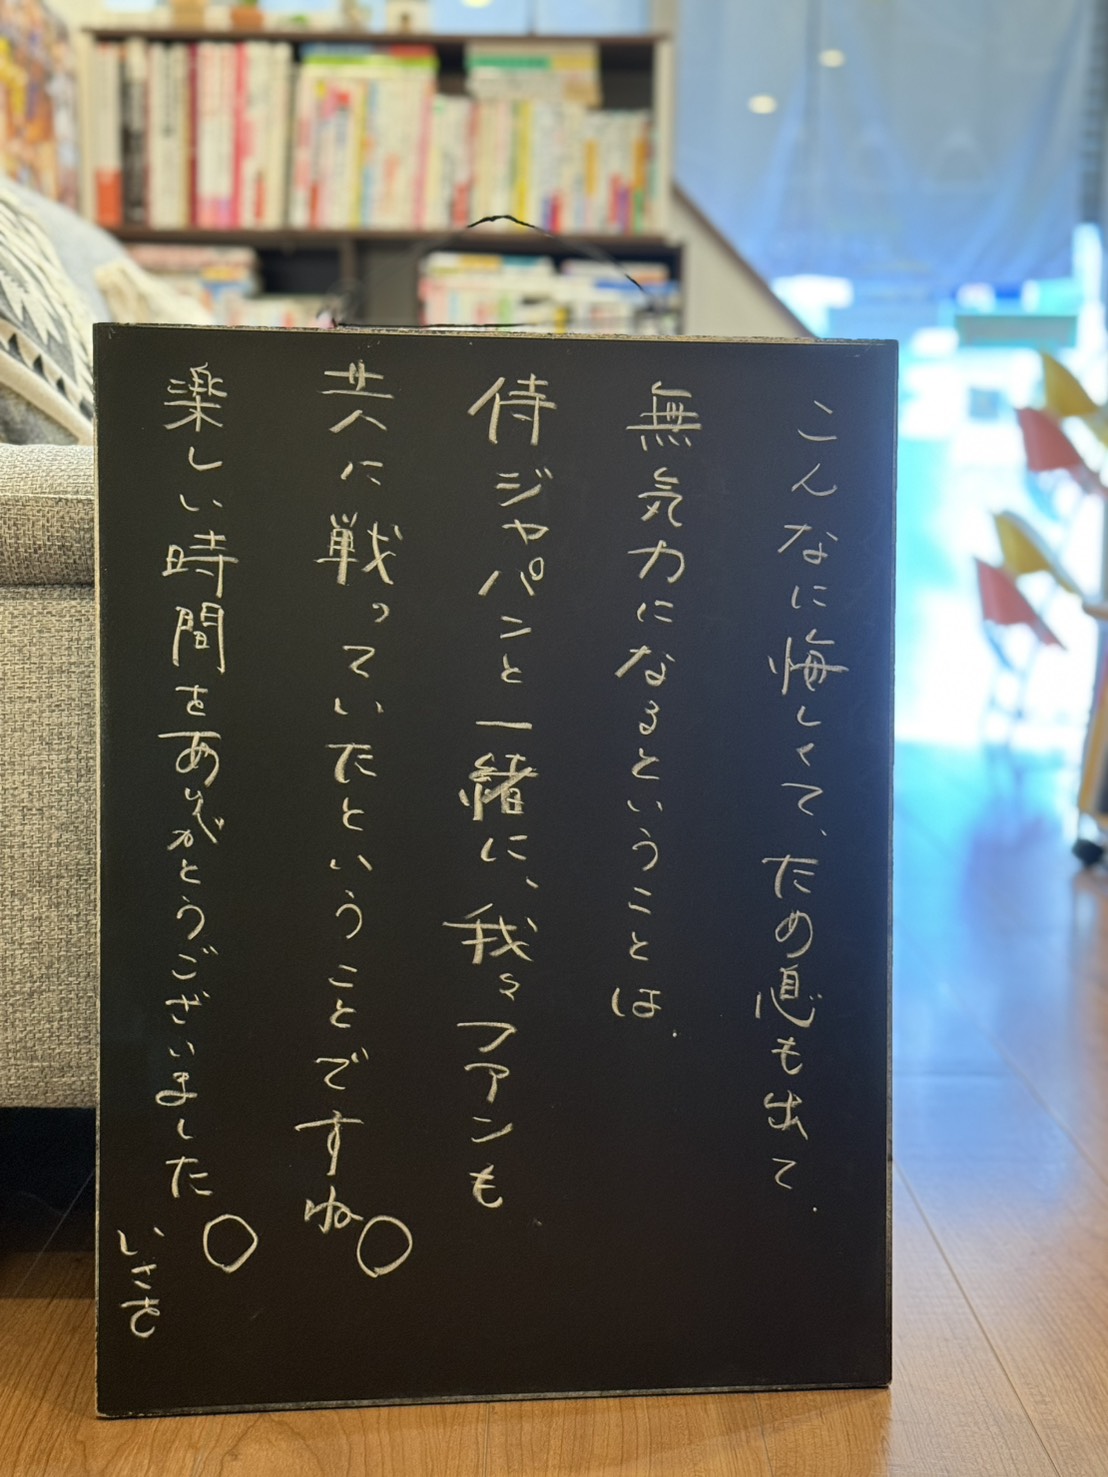 こんなに悔しくて、ため息も出て、
無気力になるということは、
侍ジャパンと一緒に、我々ファンも
共に戦っていたということですね。
楽しい時間をありがとうございました。
いさを